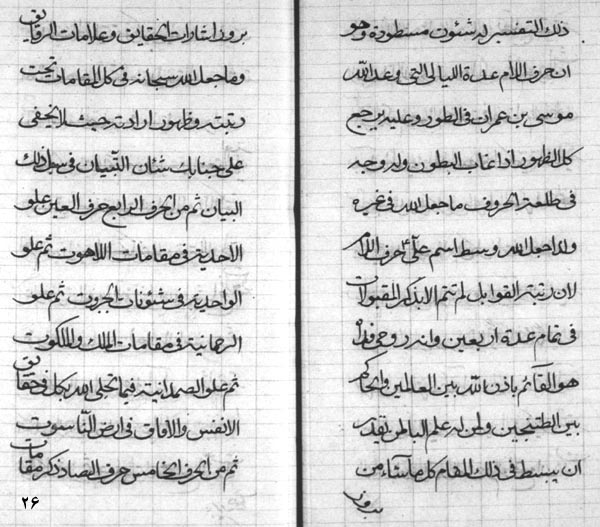 ذلك التفسير له شئون مسطورة وهو
ان حرف اللام عدة الليالى التى وعد الله
موسى بن عمران فى الطور وعليه يرجع
كل الظهور اذا غاب البطون وله وجه
فى طلعة الحروف ما جعل الله فى غيره
ولذا جعل الله وسط اسم على حرف اللام
لان رتبة القوابل لم تتم الا بذكر المقبولات
فى تمام عدة اربعين وانه روحى فداه
هو القائم باذن الله بين العالمين والحاكم
بين الطتنجين ولمن له علم الباطن يقدر
ان يبسط فى ذلك المقام كل ما يشاء من
بروز
بروز اشارات الحقايق وعلامات الرقايق
وما جعل الله سبحانه فى كل المقامات تحت
رتبته وظهور ارادته حيث لا يخفى
على جنابك شئان التبيان فى سبل ذلك
البيان ثم من الحرف الرابع حرف العين علو
الاحدية فى مقامات اللاهوت ثم علو
الواحدية فى شئونات الجبروت ثم علو
الرحمانية فى مقامات الملك والملكوت
ثم علو الصمدانية فيما تجلى الله بكل فى حقايق
الانفس والافاق فى ارض الناسوت
ثم من الحرف الخامس حرف الصاد ذكر مقامات
۲۶